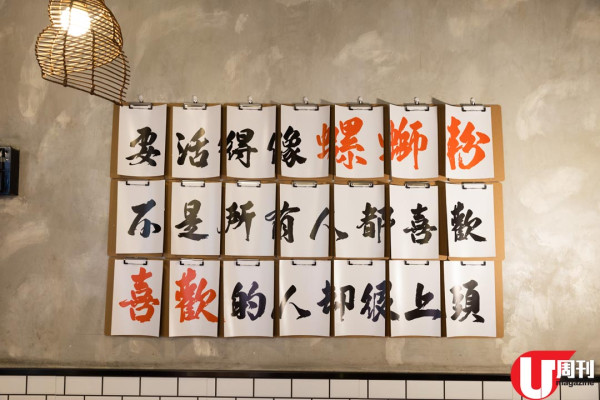 要活得像螺螄粉
不是所有人都喜歡
喜歡的人卻很上頭
U周刊
magazine